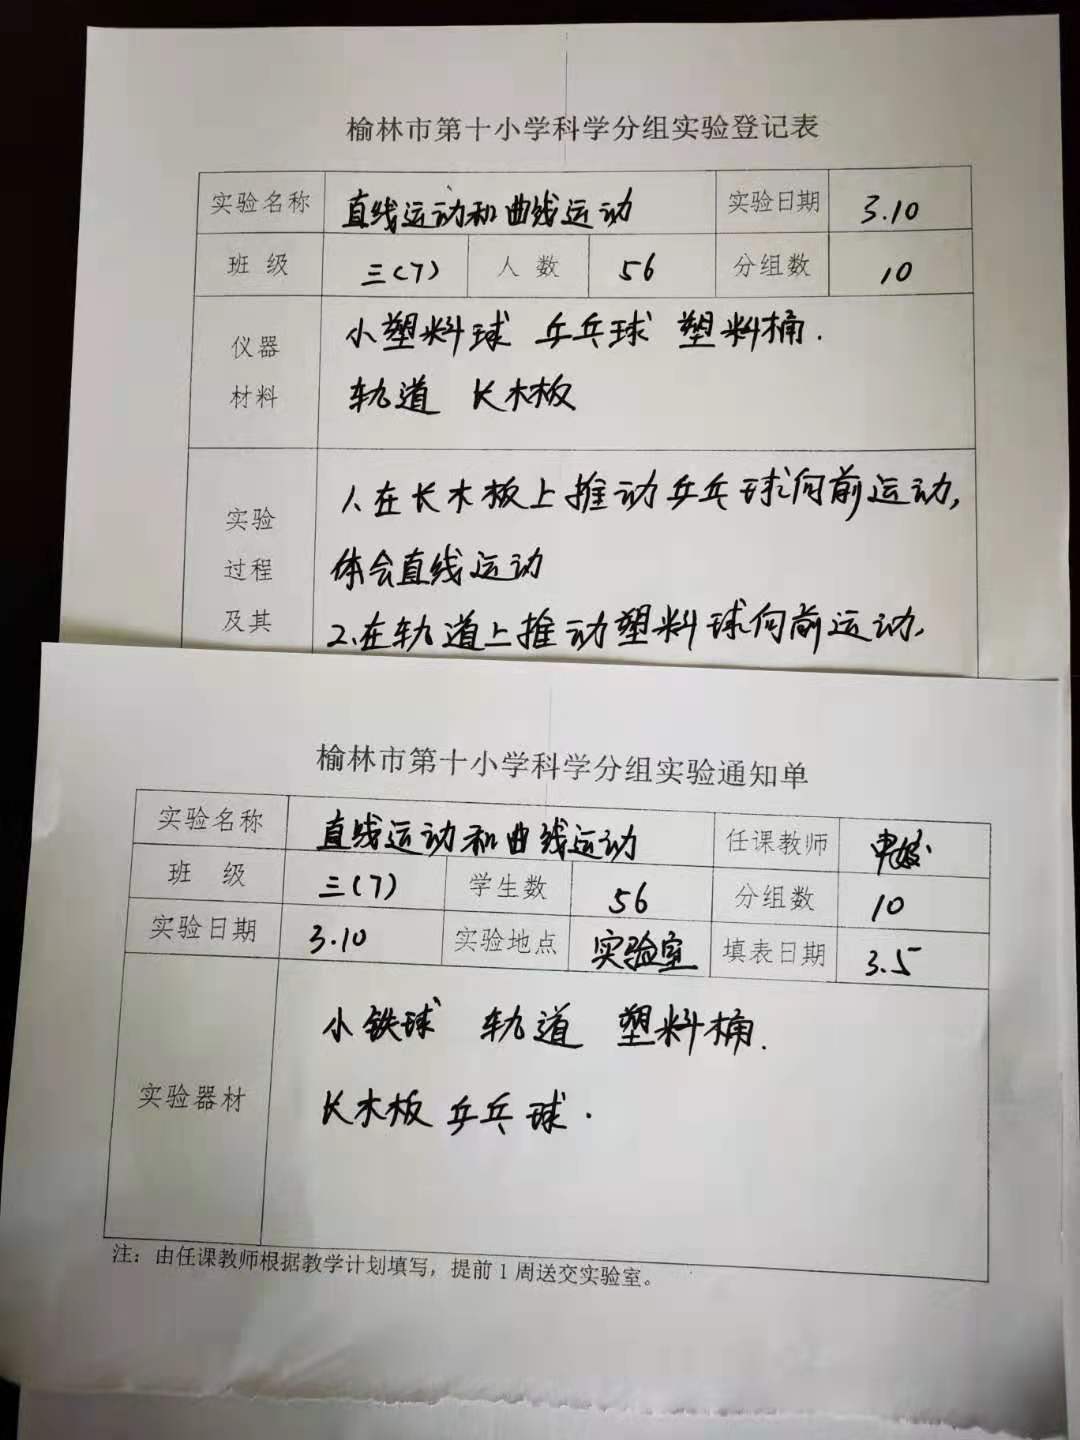 榆林市第十小学科学分组实验登记表
实验名称 直线运动和曲线运动 实验日期 3.10
班 级 三(7) 人 数 56 分组数 10
仪器 小塑料球 乒乓球 塑料桶.
材料 轨道 长木板
实验 1.在长木板上推动乒乓球向前运动,
过程 体会直线运动
及其 2.在轨道上推动塑料球向前运动,
榆林市第十小学科学分组实验通知单
实验名称 直线运动和曲线运动 任课教师
班 级 三(7) 学生数 56 分组数 10
实验日期 3.10 实验地点 实验室 填表日期 3.5
实验器材 小铁球 轨道 塑料桶.
长木板 乒乓球.
注：由任课教师根据教学计划填写，提前1周送交实验室。